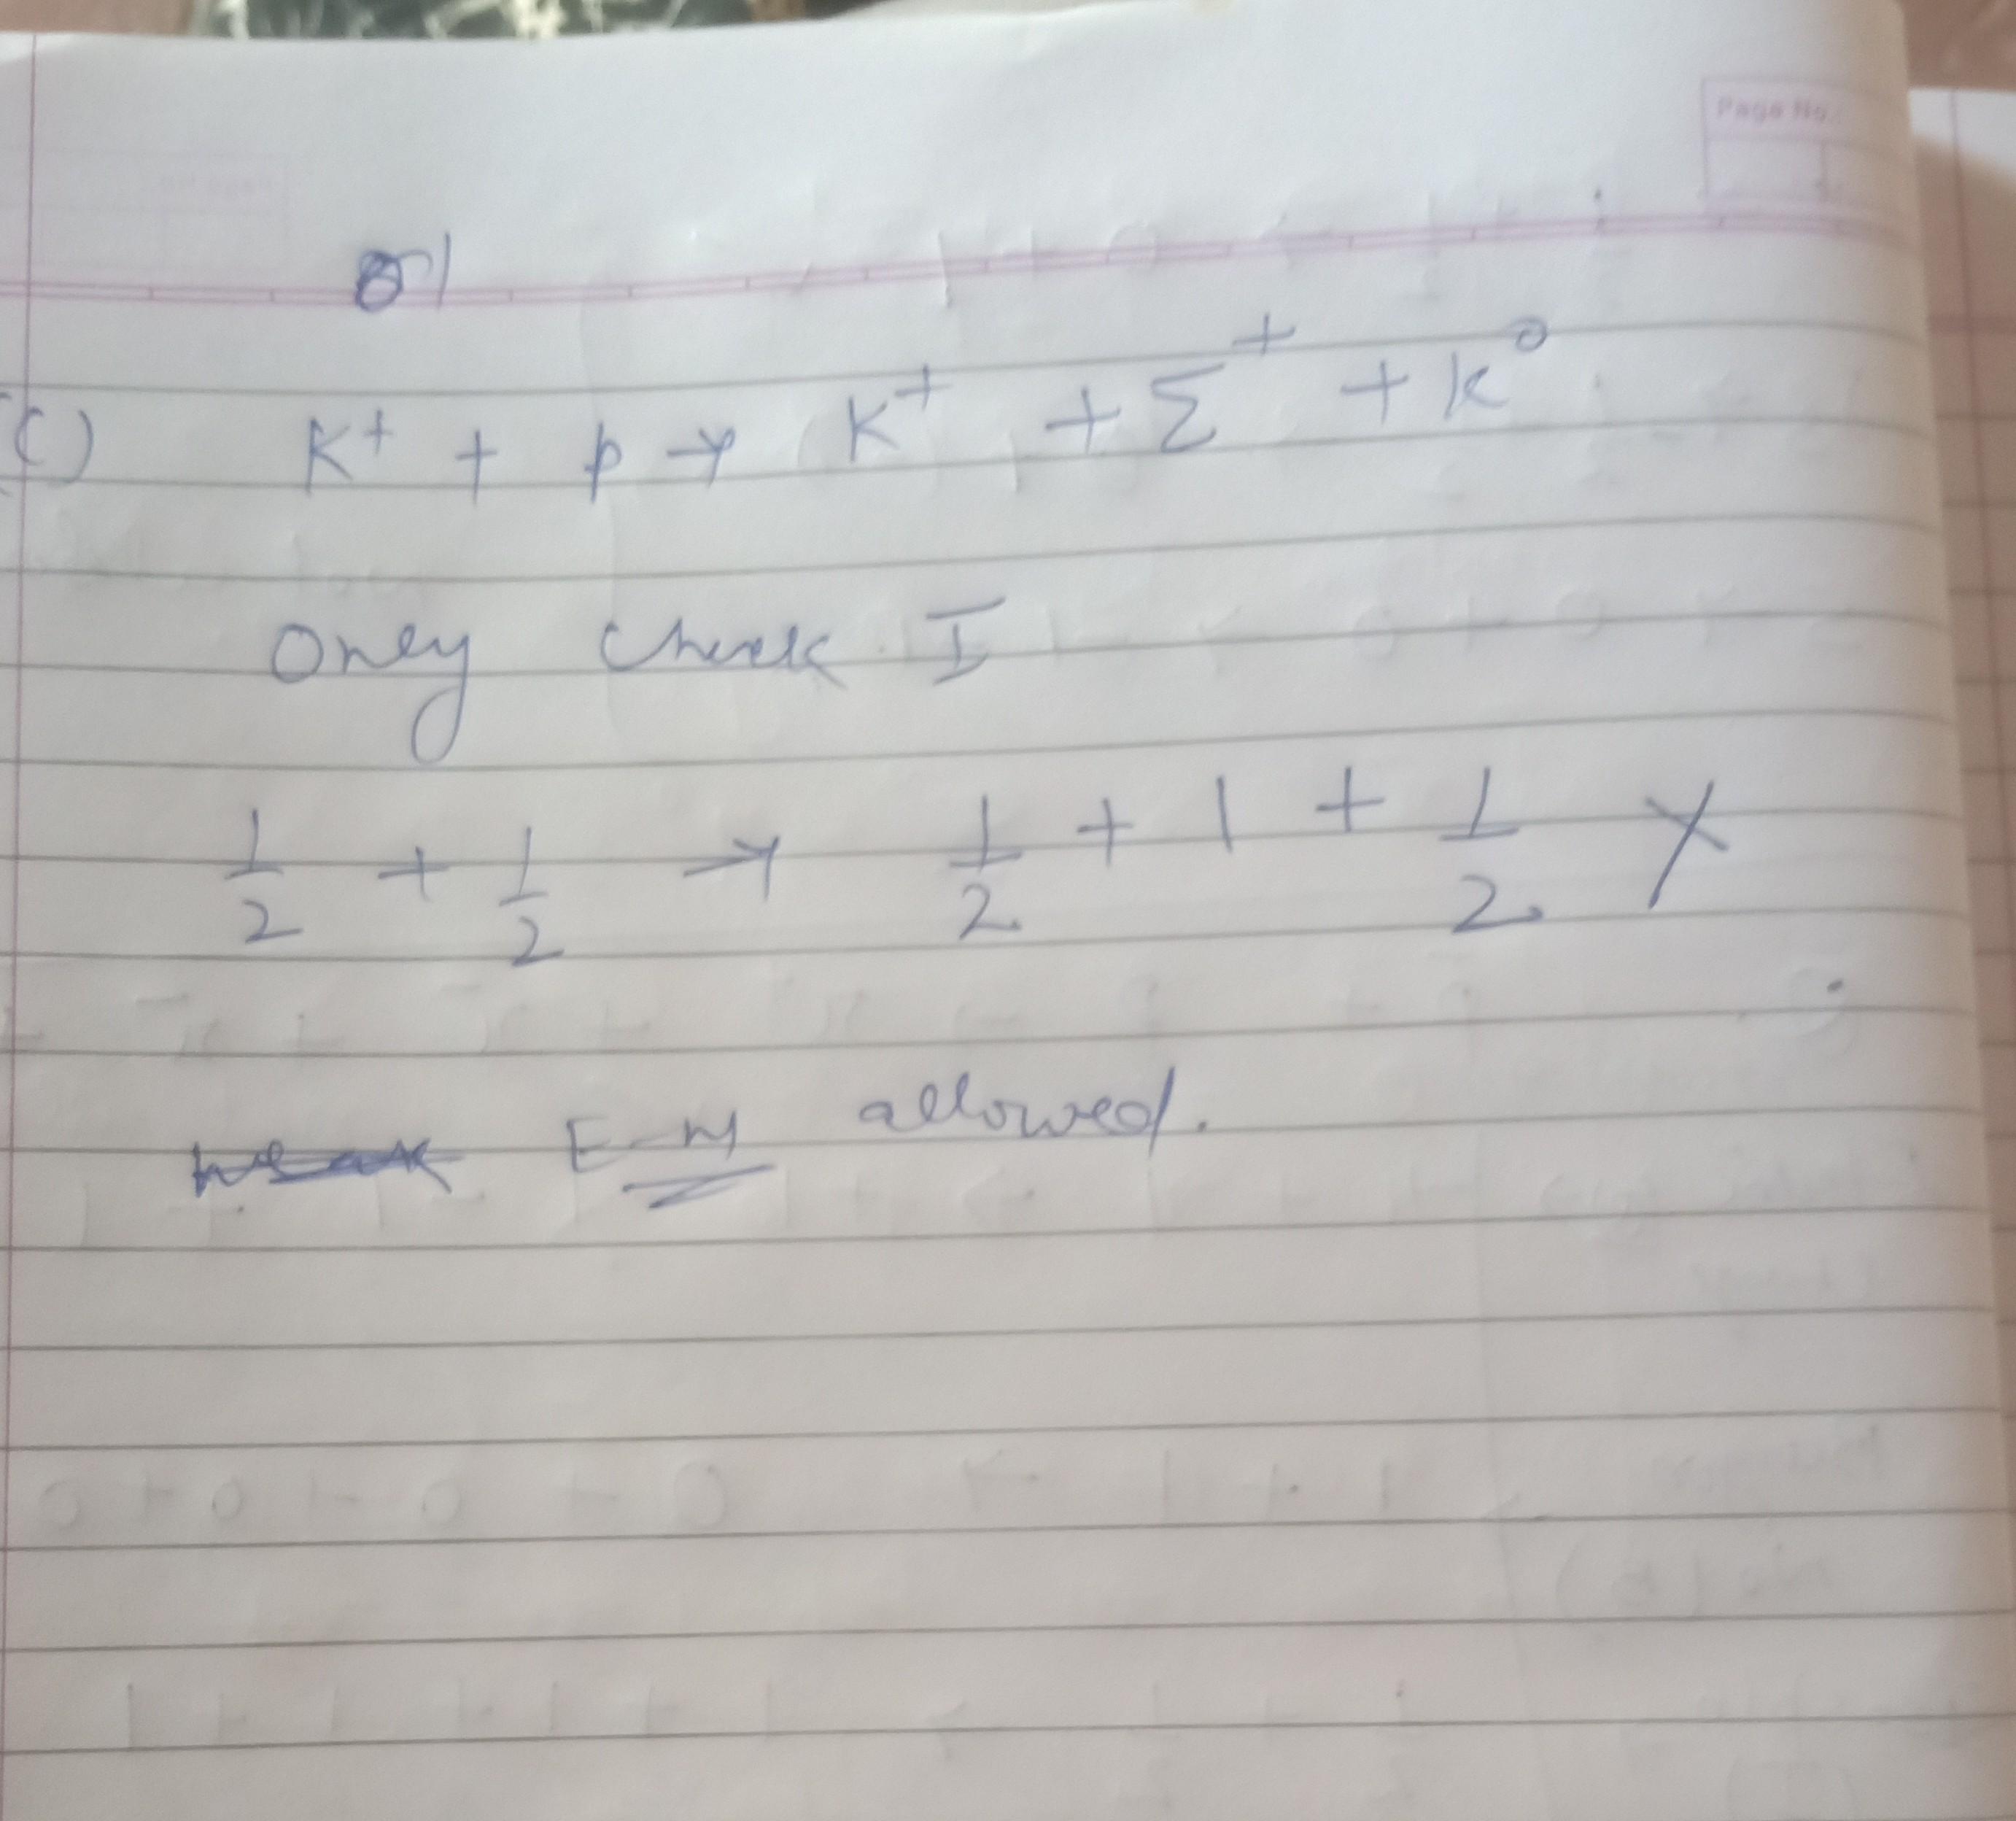 Page No.
(C) K⁺ + p → K⁺ + Σ⁺ + K⁰
Only check I
1/2 + 1/2 → 1/2 + 1 + 1/2 X
E-M allowed.